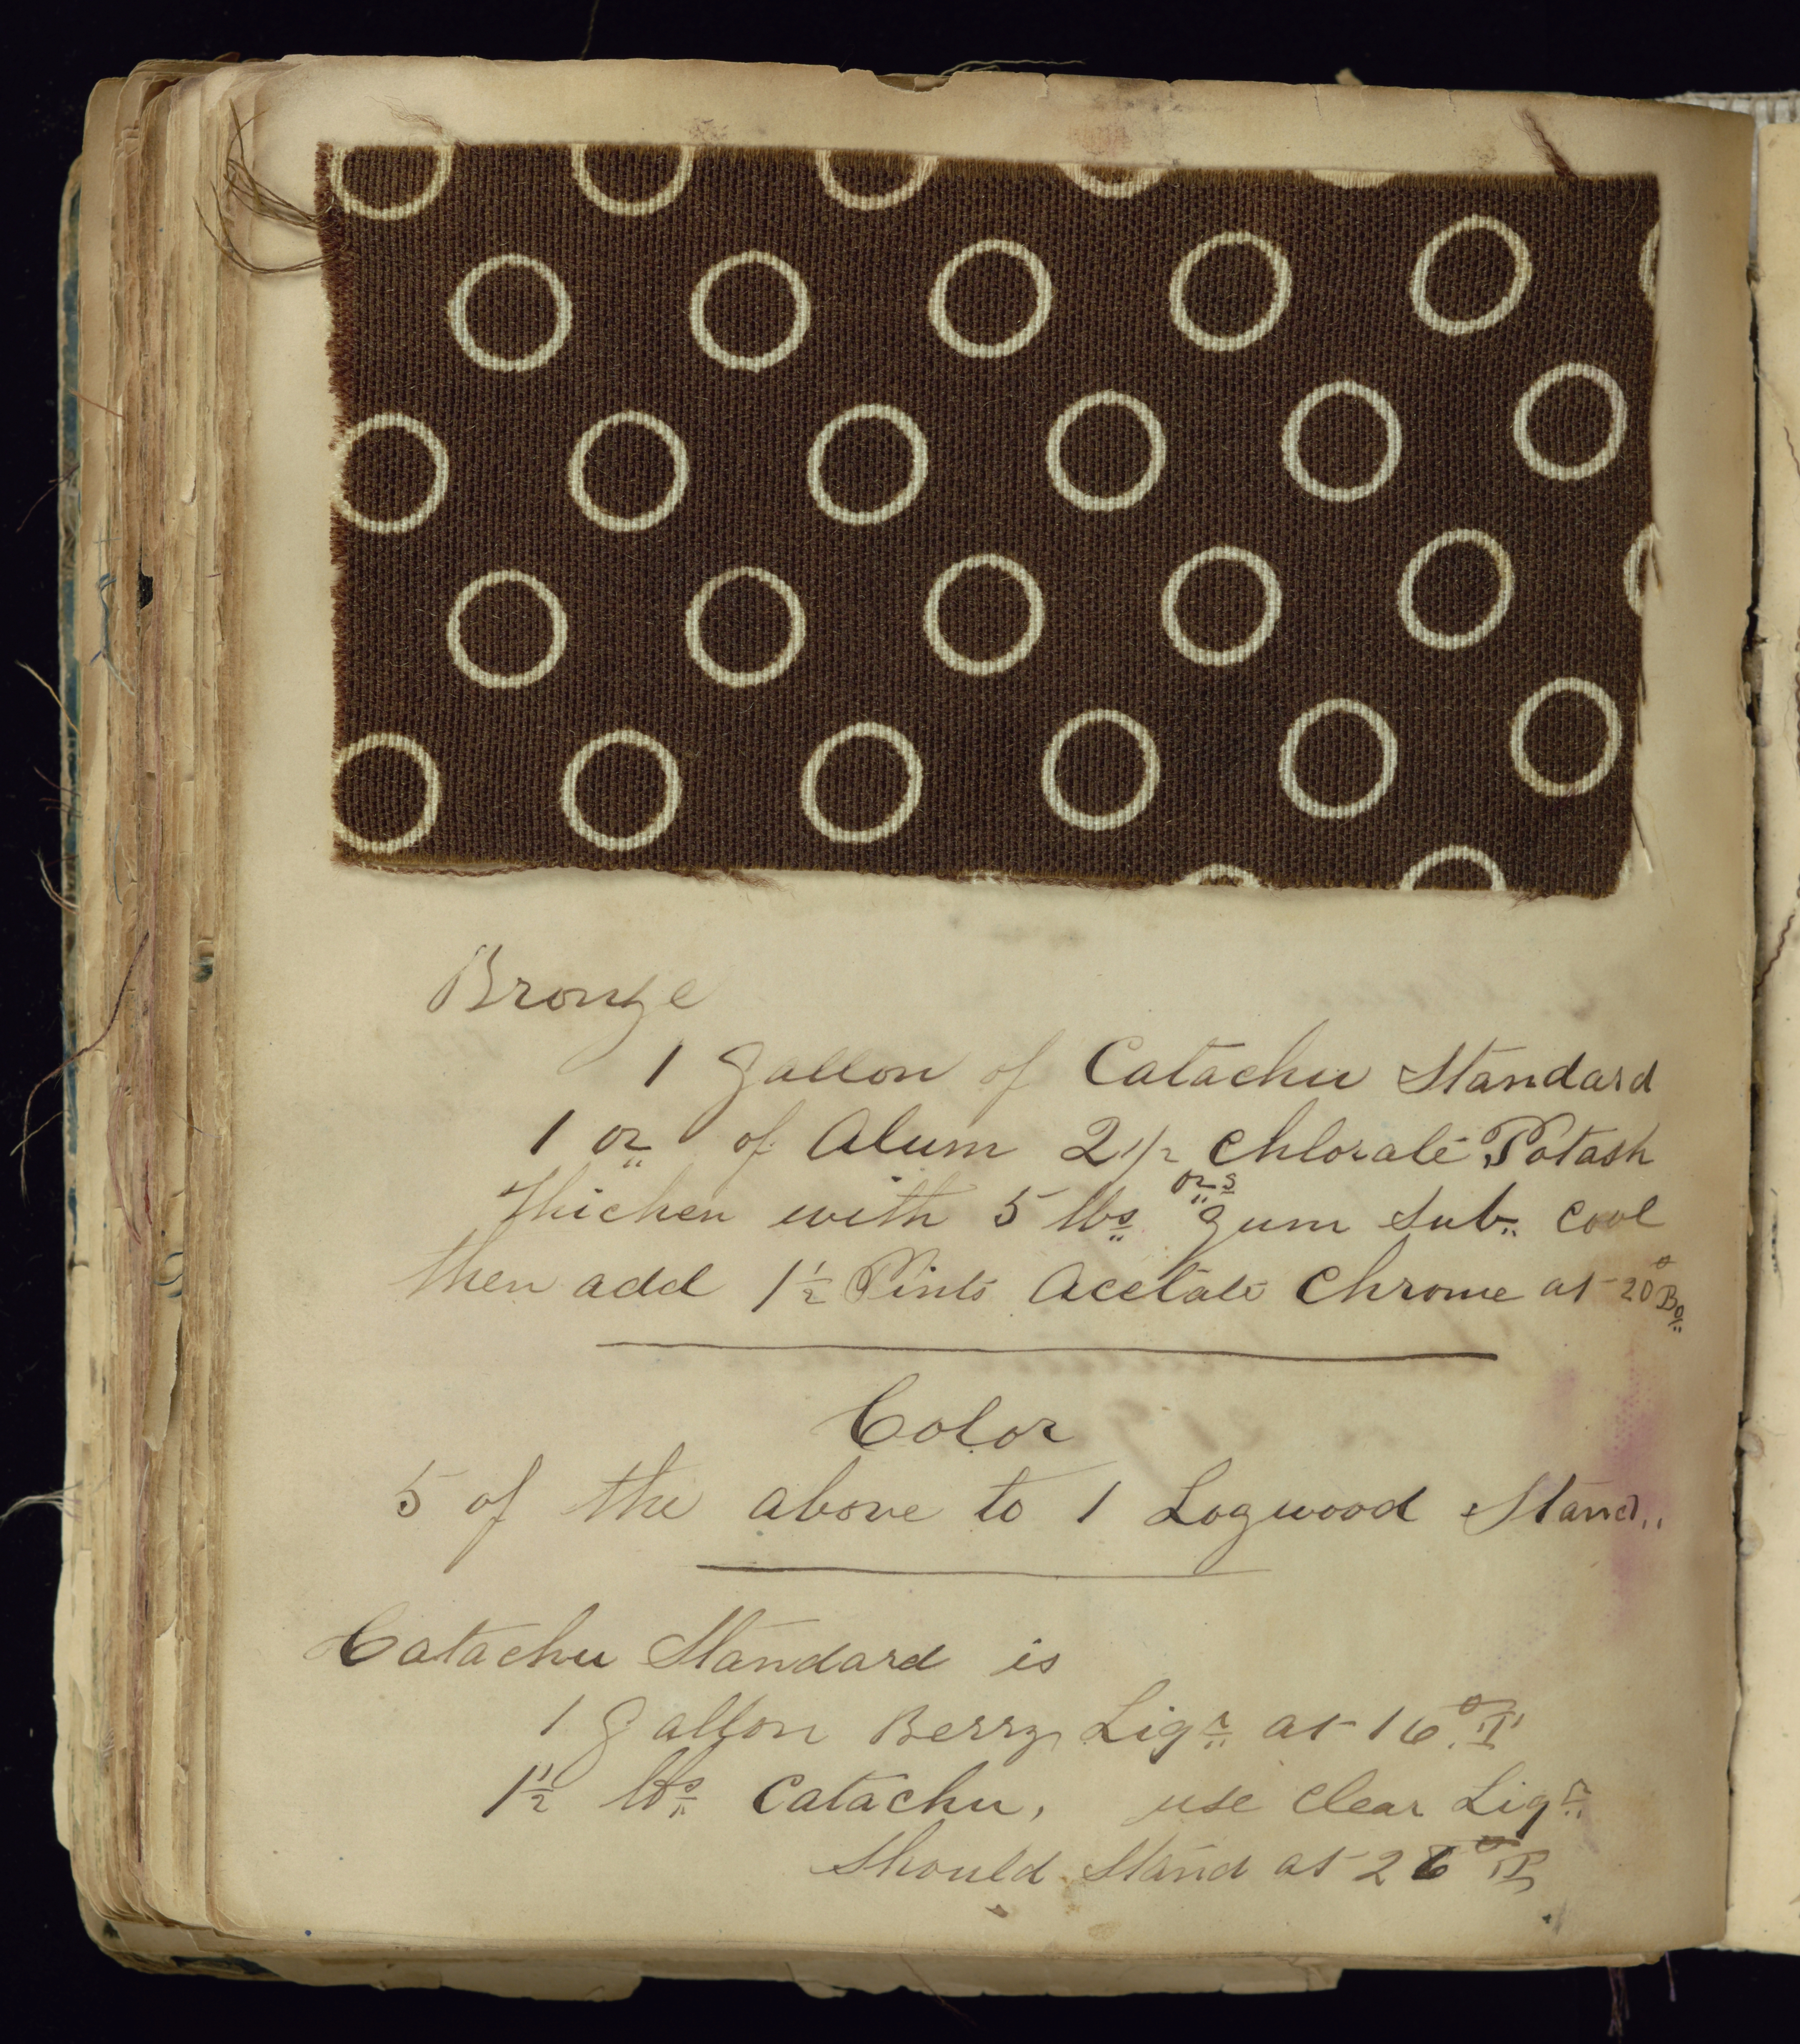 Bronze
1 Gallon of Catachu Standard
1 oz of Alum 2 1/2 Chlorate Potash
ozs
Thicken with 5 lbs Gum Sub. Cool
then add 1 1/2 Pints Acetate Chrome at 20°
Color
5 of the above to 1 Logwood Stand..
Catachu Standard is
1 Gallon Berry Liqr at 16° T
1 1/2 lbs Catachu, use Clear Liqr
Should Stand at 26°